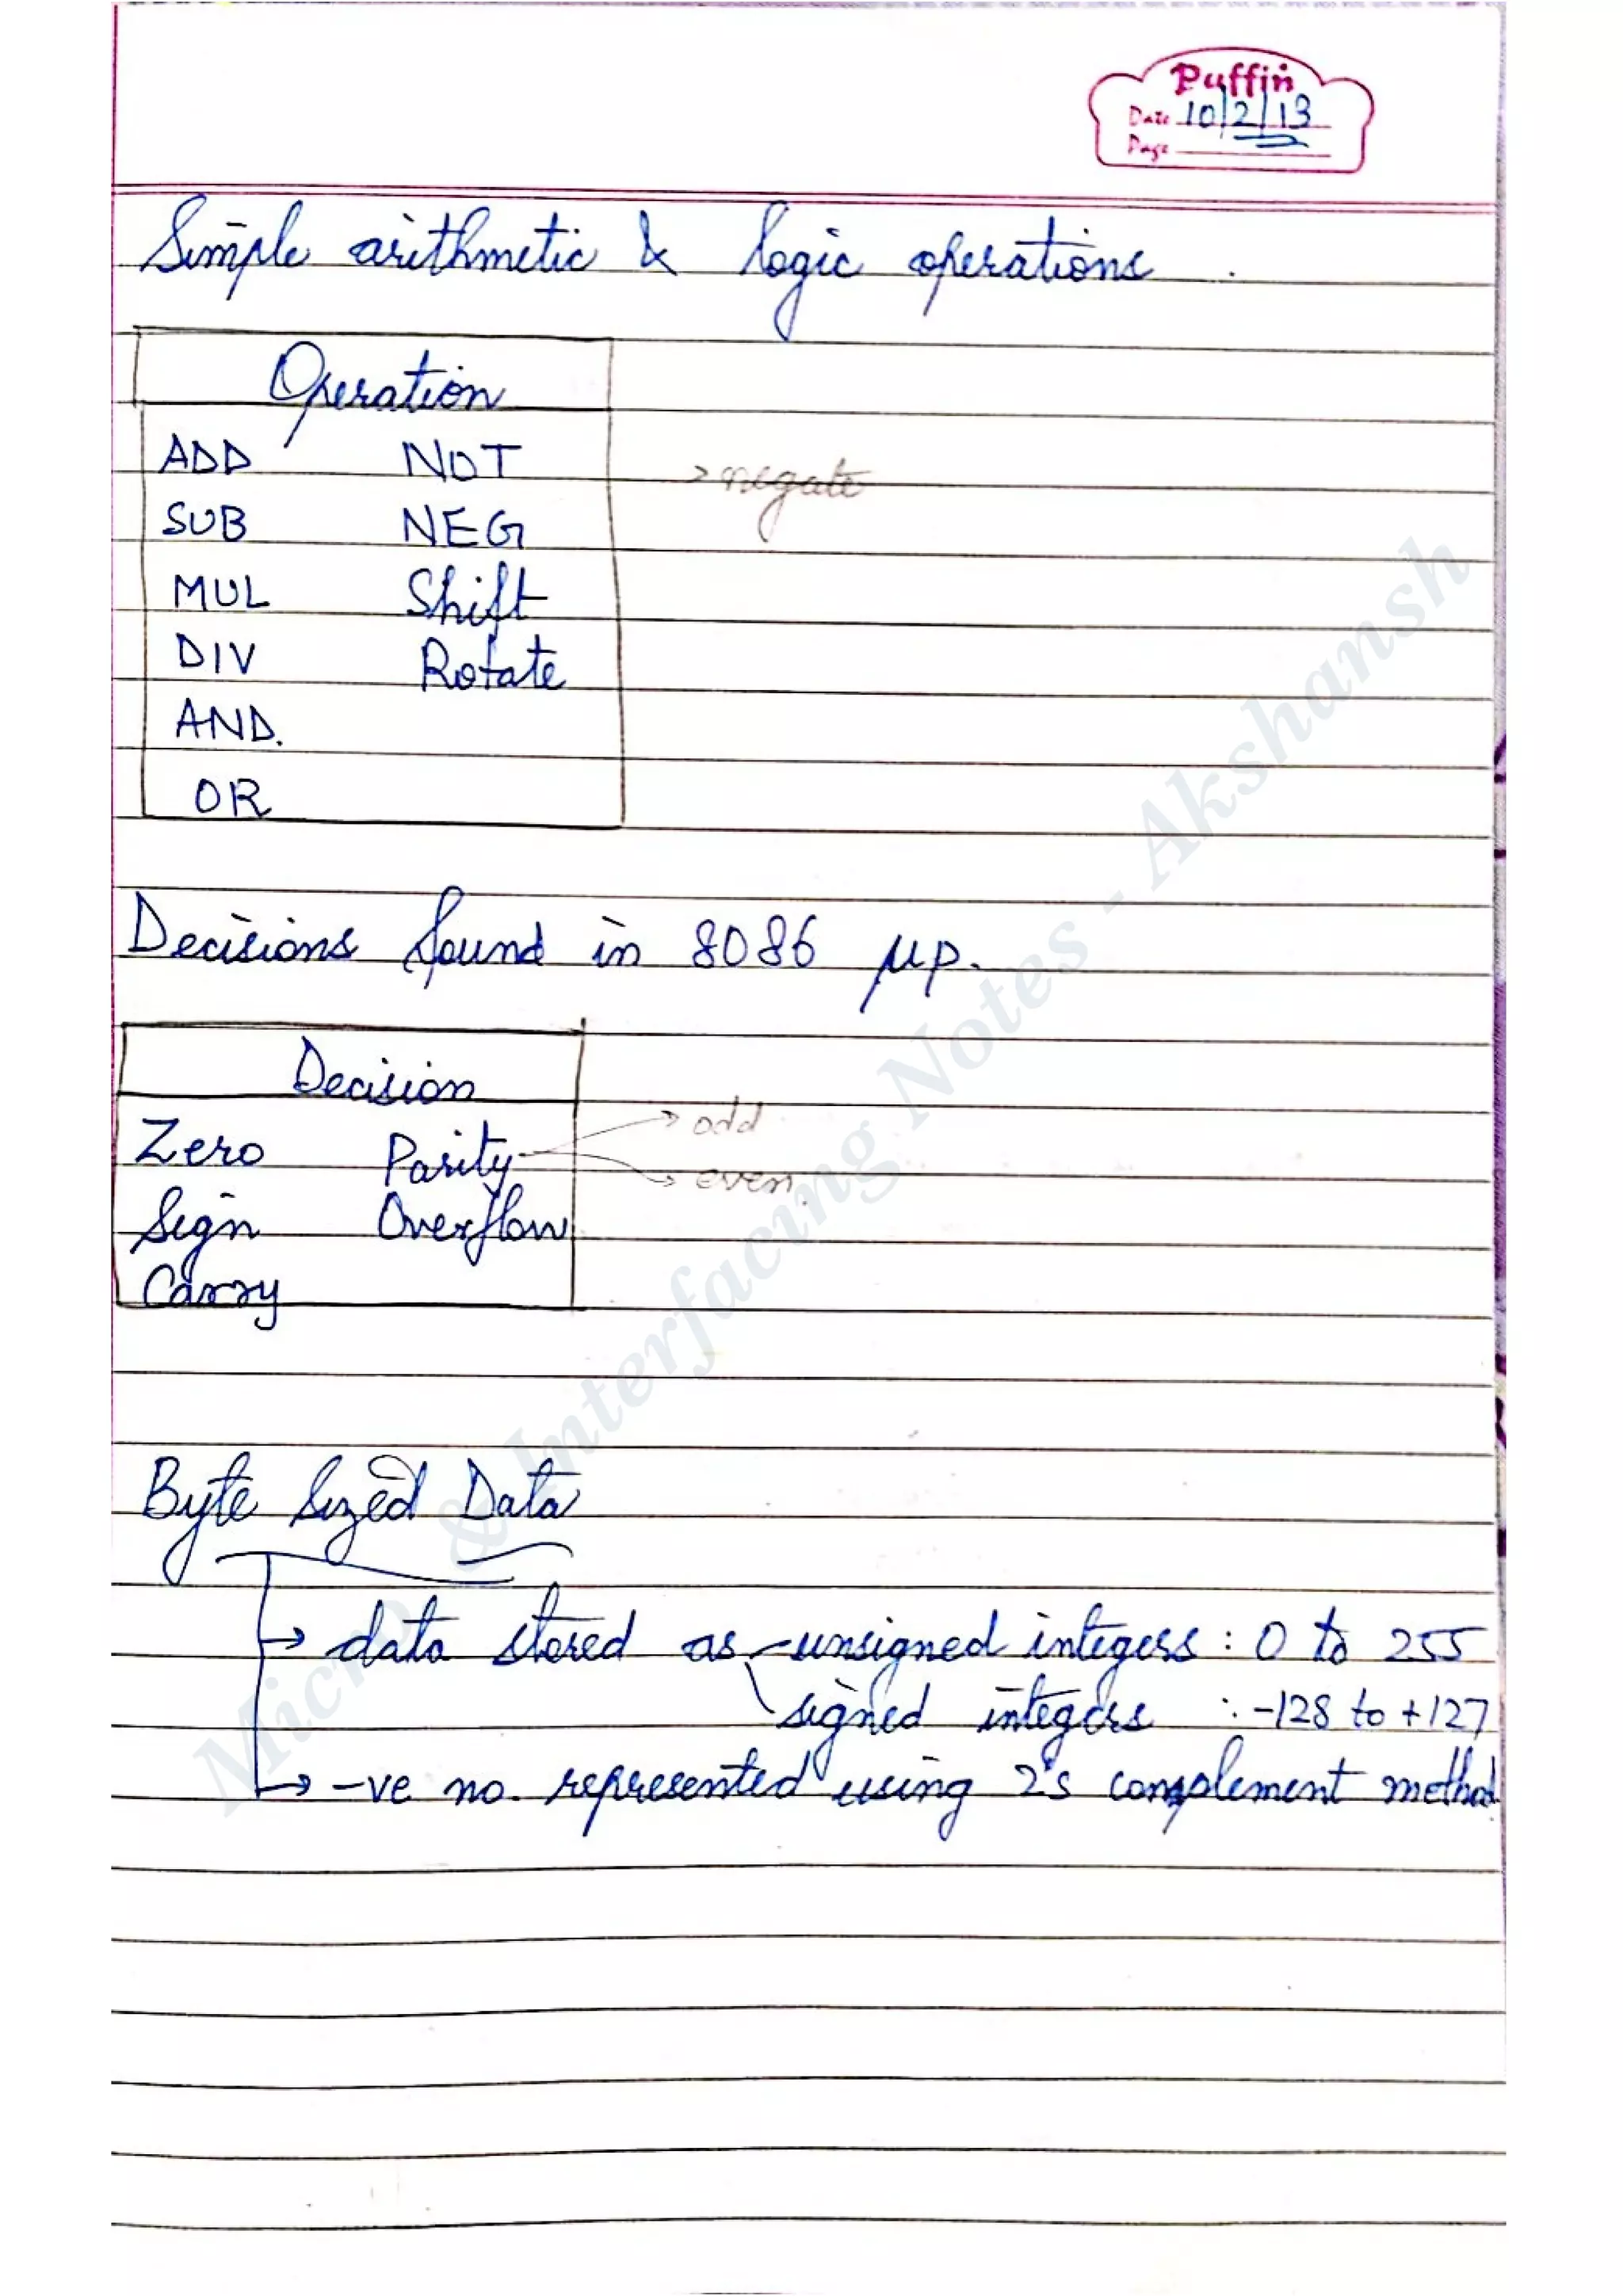 Puffin
Date 10/2/13
Page
Simple arithmetic & logic operations
Operation
ADD NOT → negate
SUB NEG
MUL Shift
DIV Rotate
AND.
OR
Decisions found in 8086 μp.
Decision
Zero Parity → odd
→ even
Sign Overflow
Carry
Byte Sized Data
→ data stored as unsigned integers : 0 to 255
signed integers : -128 to +127
→ -ve no. represented using 2's complement method
Micro & Interfacing Notes - Akshansh